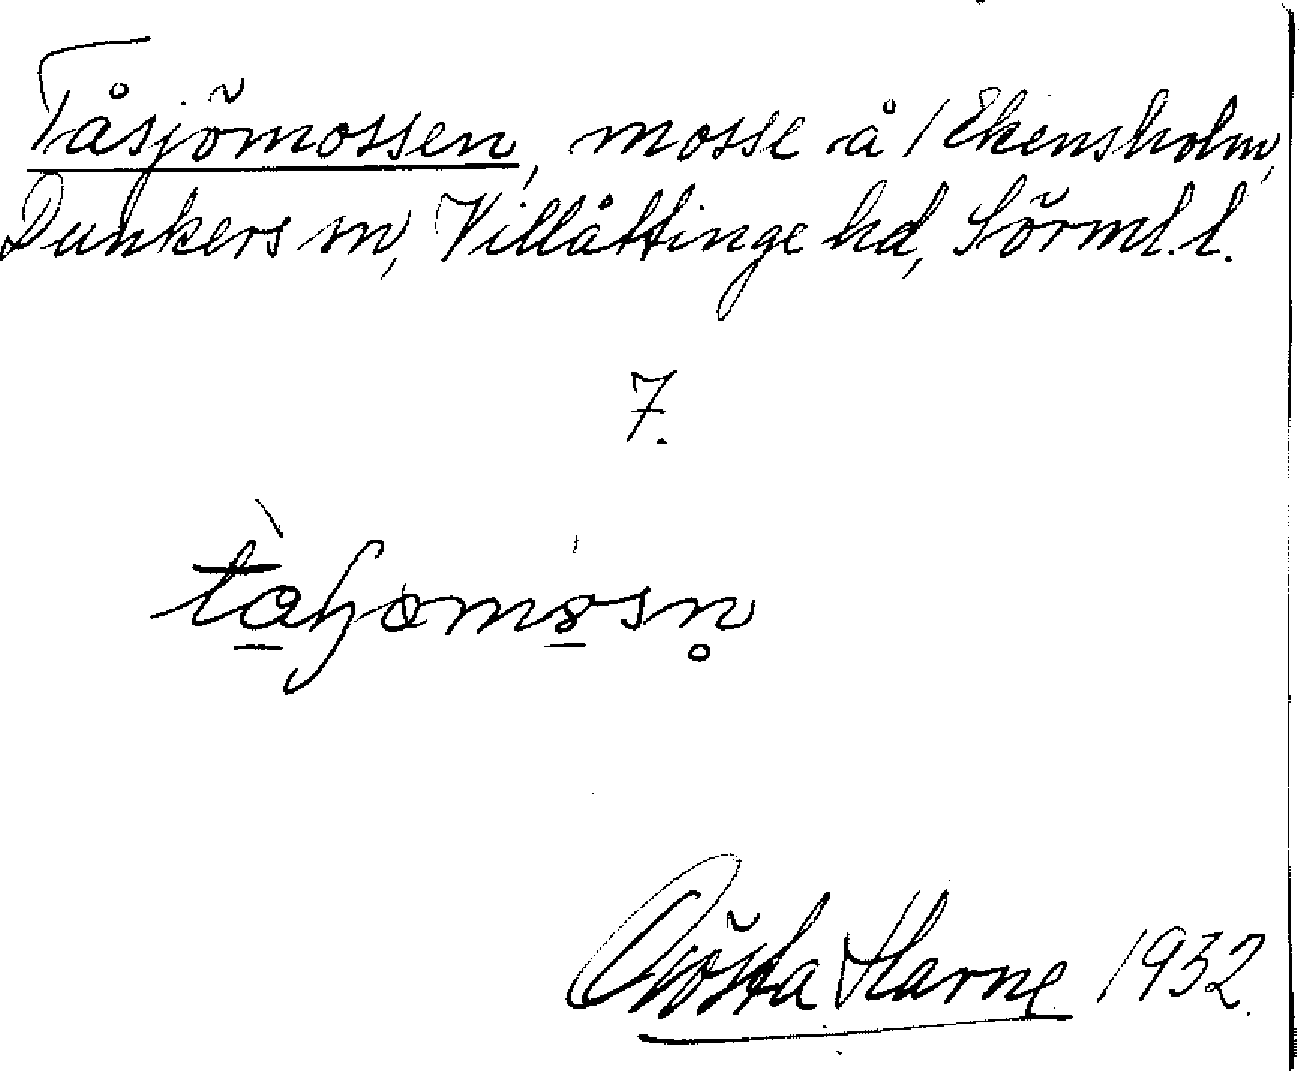 Tåsjömossen, mosse å / Ekensholm,
Dunkers sn, Villåttinge hd, Sörml. l.
7.
Gösta Harne 1932.